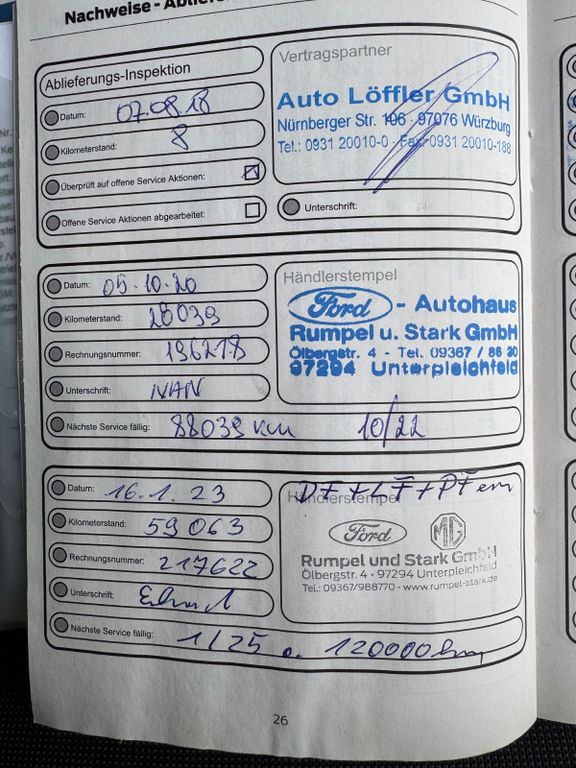 Nachweise - Abliefer
Ablieferungs-Inspektion
Datum: 07.08.18
Kilometerstand: 8
Überprüft auf offene Service Aktionen:
Offene Service Aktionen abgearbeitet:
Vertragspartner
Auto Löffler GmbH
Nürnberger Str. 106 · 97076 Würzburg
Tel.: 0931 20010-0 · Fax: 0931 20010-188
Unterschrift:
Datum: 05.10.20
Kilometerstand: 28039
Rechnungsnummer: 196218
Unterschrift: IVAN
Nächste Service fällig: 88039 km 10/22
Händlerstempel
Ford - Autohaus
Rumpel u. Stark GmbH
Ölbergstr. 4 - Tel. 09367 / 86 20
97294 Unterpleichfeld
Datum: 16.1.23
Kilometerstand: 59063
Rechnungsnummer: 217622
Unterschrift:
Nächste Service fällig: 1/25 o. 120000 km
Händlerstempel
Ford MG
Rumpel und Stark GmbH
Ölbergstr. 4 · 97294 Unterpleichfeld
Tel.: 09367/988770 · www.rumpel-stark.de
26